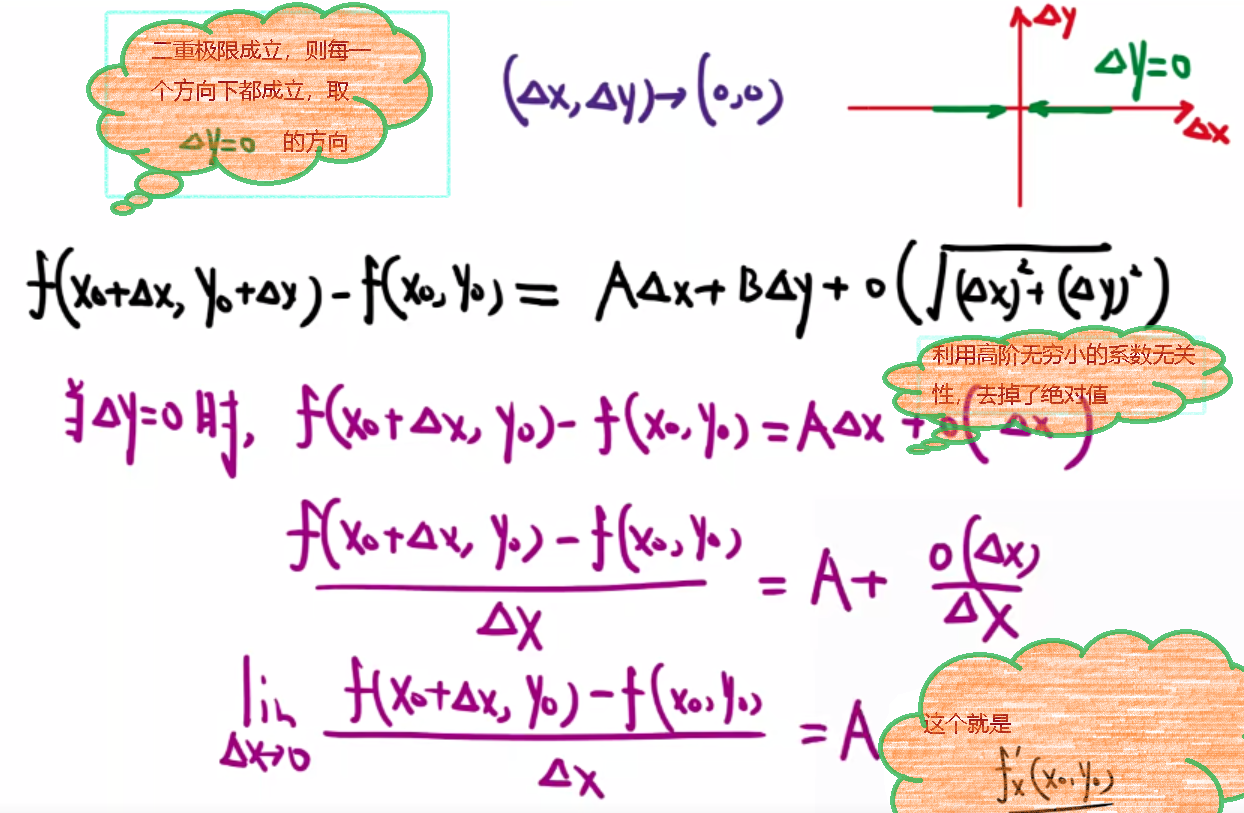 二重极限成立，则每一
个方向下都成立，取
ΔY=0 的方向
(Δx, Δy)→(0,0)
Δy
ΔY=0
Δx
f(x₀+Δx, y₀+Δy)-f(x₀, y₀) = AΔx+BΔy+o(√(Δx)²+(Δy)²)
利用高阶无穷小的系数无关
性，去掉了绝对值
当Δy=0时, f(x₀+Δx, y₀)-f(x₀, y₀)=AΔx+o(Δx)
f(x₀+Δx, y₀)-f(x₀, y₀)
= A+
o(Δx)
ΔX
ΔX
lim
Δx→0
f(x₀+Δx, y₀)-f(x₀, y₀)
= A
Δx
这个就是
f'ₓ(x₀, y₀)